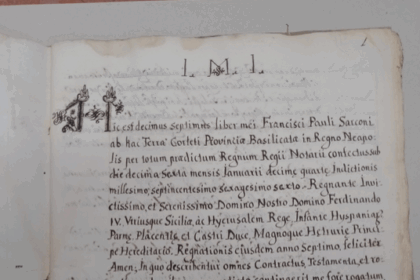 I. M. I.
Hic est decimus septimus liber mei Francisci Pauli Sarconi
ab hac Terra Gorleti Provinciæ Basilicatæ in Regno Neapo-
lis per totum prædictum Regnum Regii Notarii contectus sub
die decima sexta mensis Januarii decimæ quartæ Indictionis
millesimo septincentesimo sexagesimo sexto. Regnante Invi-
ctissimo, et Serenissimo Domino Nostro Domino Ferdinando
IV. Utriusque Siciliæ, ac Hyerusalem Rege, Infante Huspaniar
Parmæ, Placentiæ, et Castri Duc, Magnoque Hetruriæ Princi-
pe Hereditario. Regnationis ejusdem anno Septimo feliciter
Amen. In quo describentur omnes Contractus, Testamenta, et